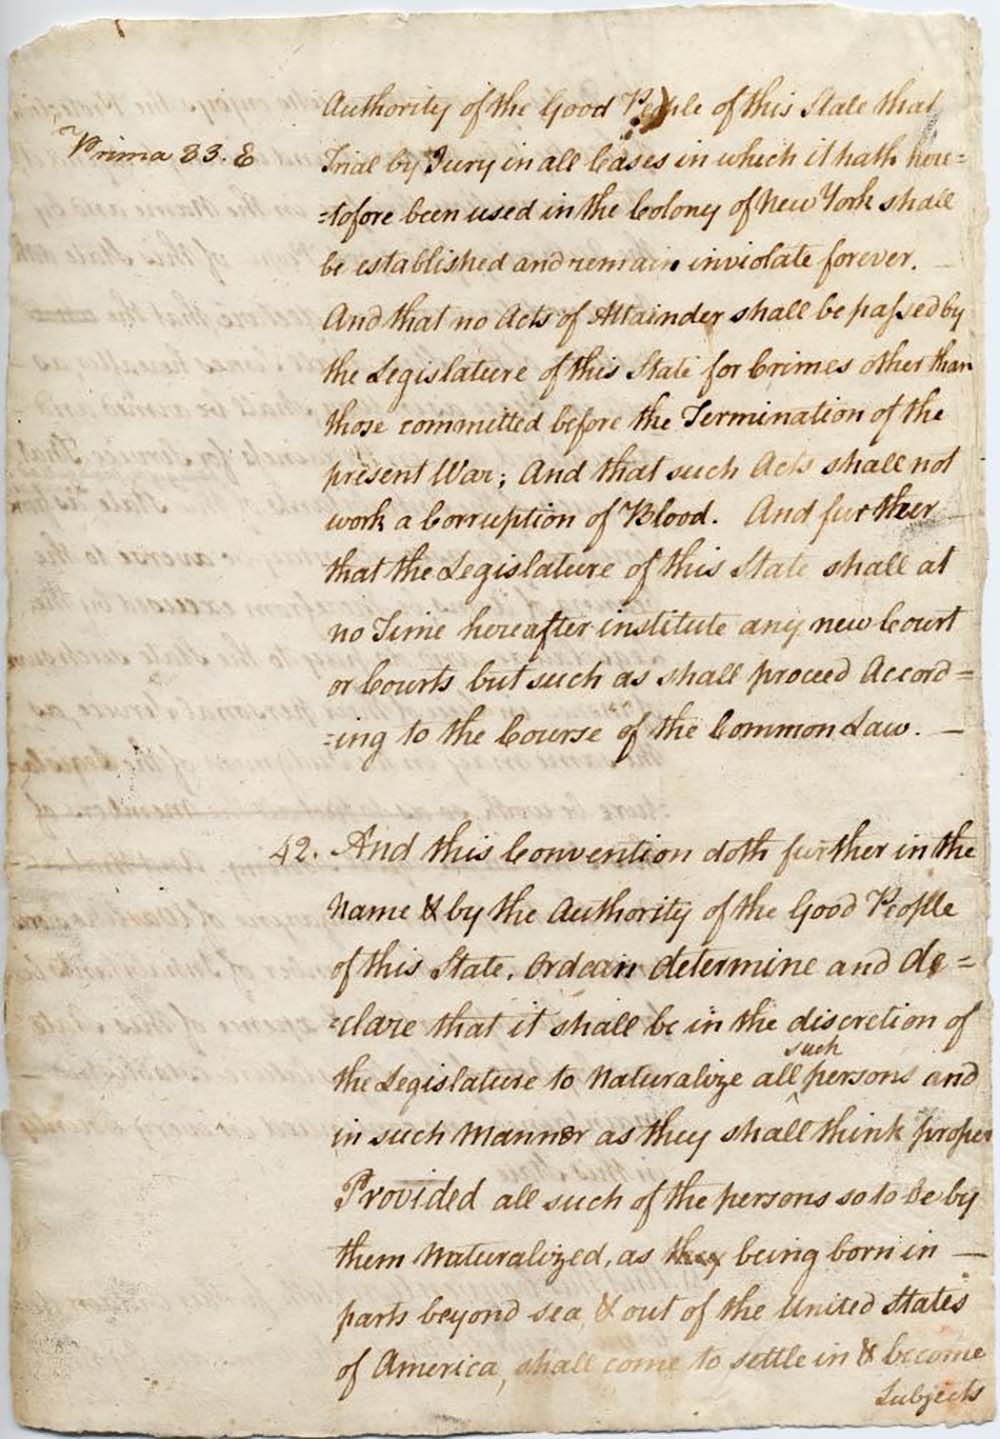 Authority of the Good People of this State that
Prima 33. E
Trial by Jury in all Cases in which it hath here=
=tofore been used in the Colony of New York shall
be established and remain inviolate forever. —
And that no Acts of Attainder shall be passed by
the Legislature of this State for Crimes other than
those committed before the Termination of the
present War; And that such Acts shall not
work a Corruption of Blood. And further
that the Legislature of this State shall at
no Time hereafter institute any new Court
or Courts but such as shall proceed Accord=
=ing to the Course of the Common Law. —
42. And this Convention doth further in the
Name & by the Authority of the Good People
of this State, Ordain determine and de=
=clare that it shall be in the discretion of
such
the Legislature to Naturalize all persons and
in such Manner as they shall think proper
Provided all such of the persons so to be by
them Naturalized, as they being born in —
parts beyond sea, & out of the United States
of America, shall come to settle in & become
Subjects